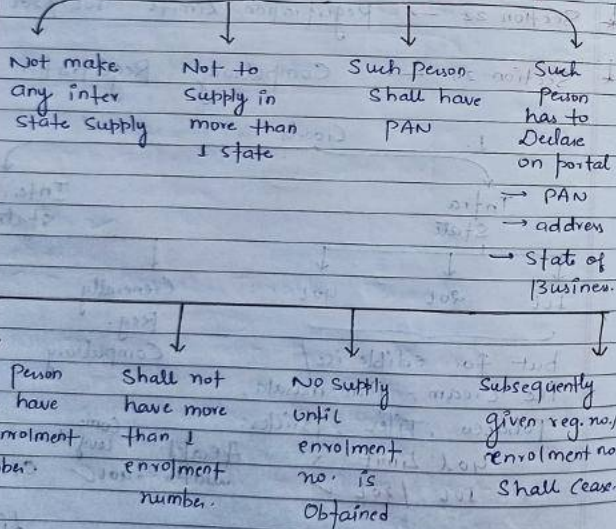 Not make
any inter
state supply
Not to
supply in
more than
1 state
Such person
shall have
PAN
Such
Person
has to
Declare
on portal
→ PAN
→ address
→ State of
Busines.
Person
have
nrolment
ber.
Shall not
have more
than 1
enrolment
number.
No supply
until
enrolment
no. is
Obtained
Subsequently
given reg. no.,
enrolment no
shall cease.